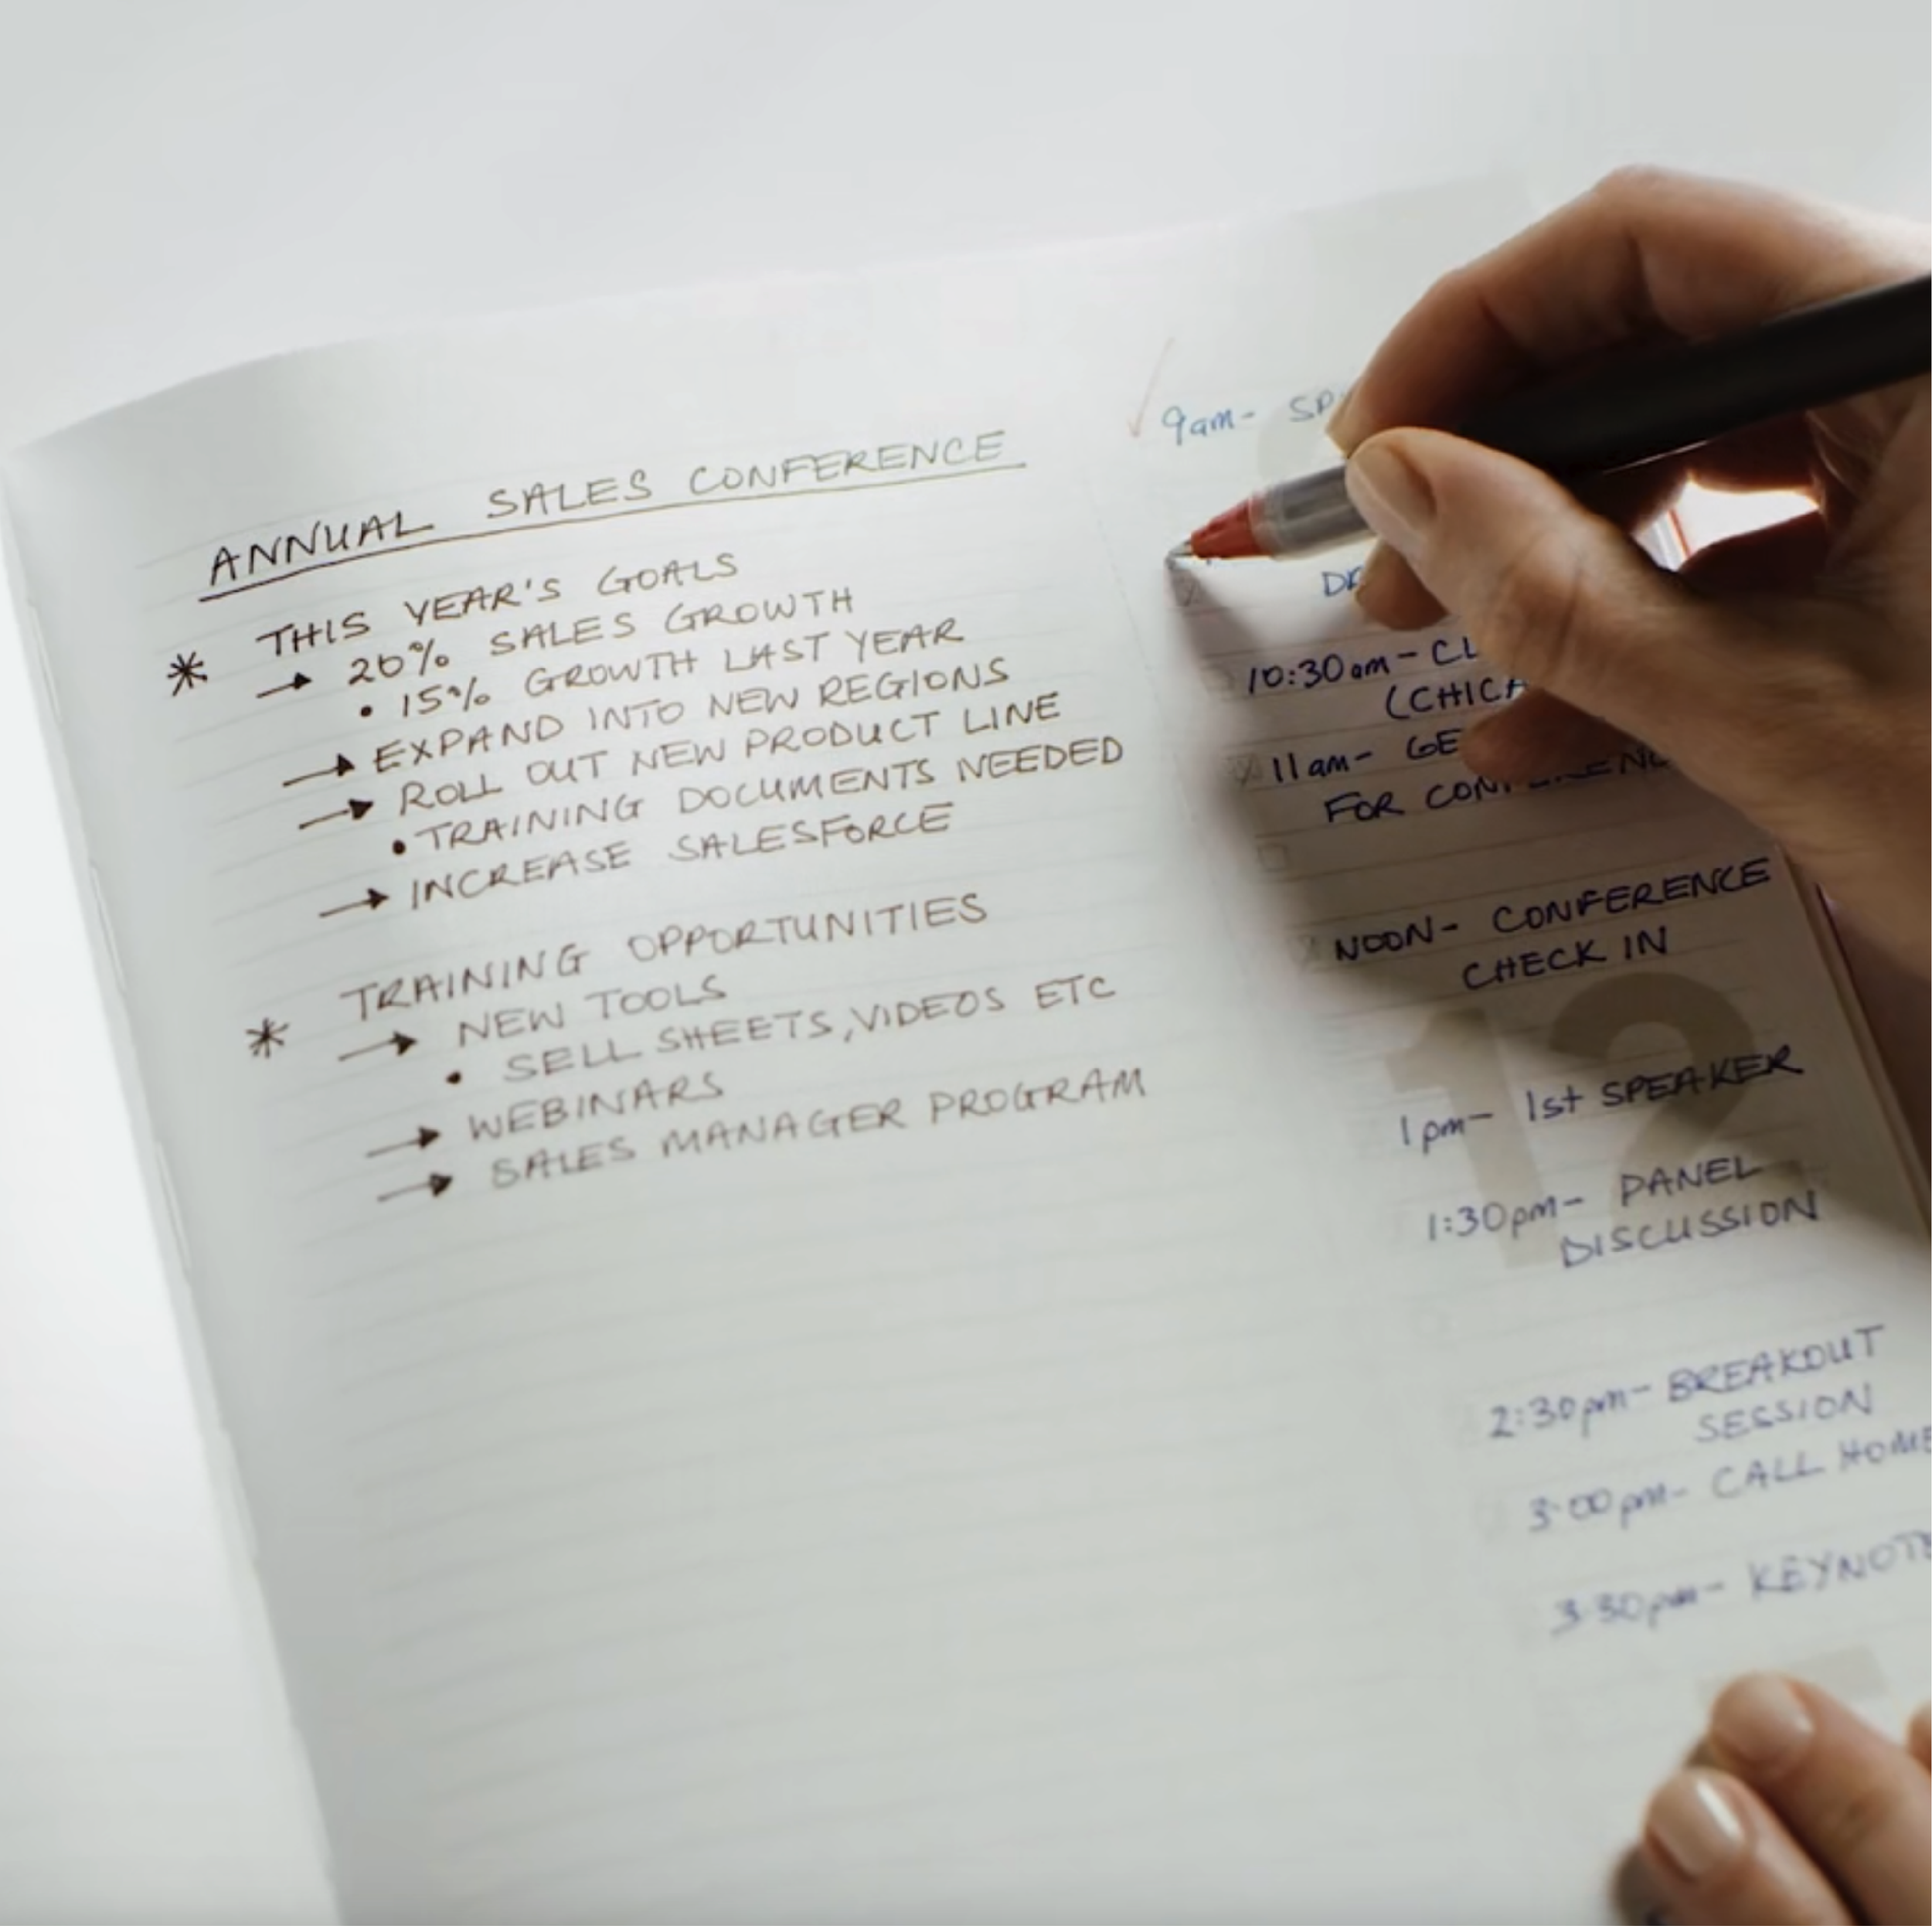 ANNUAL SALES CONFERENCE
* THIS YEAR'S GOALS
→ 20% SALES GROWTH
• 15% GROWTH LAST YEAR
→ EXPAND INTO NEW REGIONS
→ ROLL OUT NEW PRODUCT LINE
• TRAINING DOCUMENTS NEEDED
→ INCREASE SALESFORCE
* TRAINING OPPORTUNITIES
→ NEW TOOLS
• SELL SHEETS, VIDEOS ETC
→ WEBINARS
→ SALES MANAGER PROGRAM
9am-
10:30am-
11am-
FOR
NOON- CONFERENCE
CHECK IN
12
1pm- 1st SPEAKER
1:30pm- PANEL
DISCUSSION
2:30pm- BREAKOUT
SESSION
3:00pm- CALL HOME
3:30pm- KEYNOTE